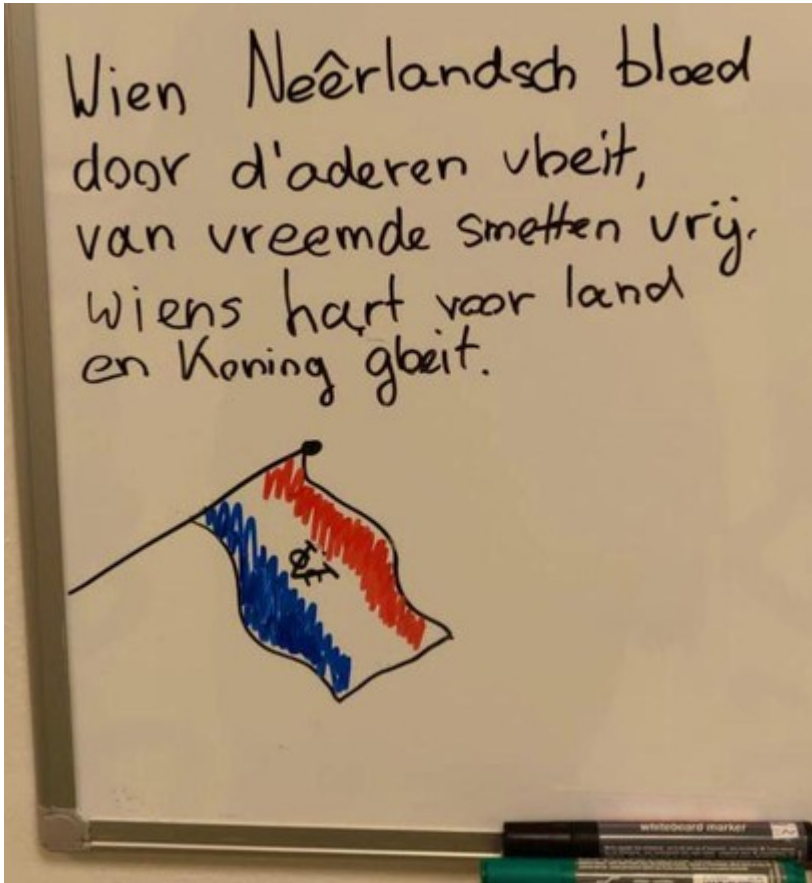 Wien Neêrlandsch bloed
door d'aderen vbeit,
van vreemde smetten vrij.
wiens hart voor land
en Koning gbeit.
whiteboard marker